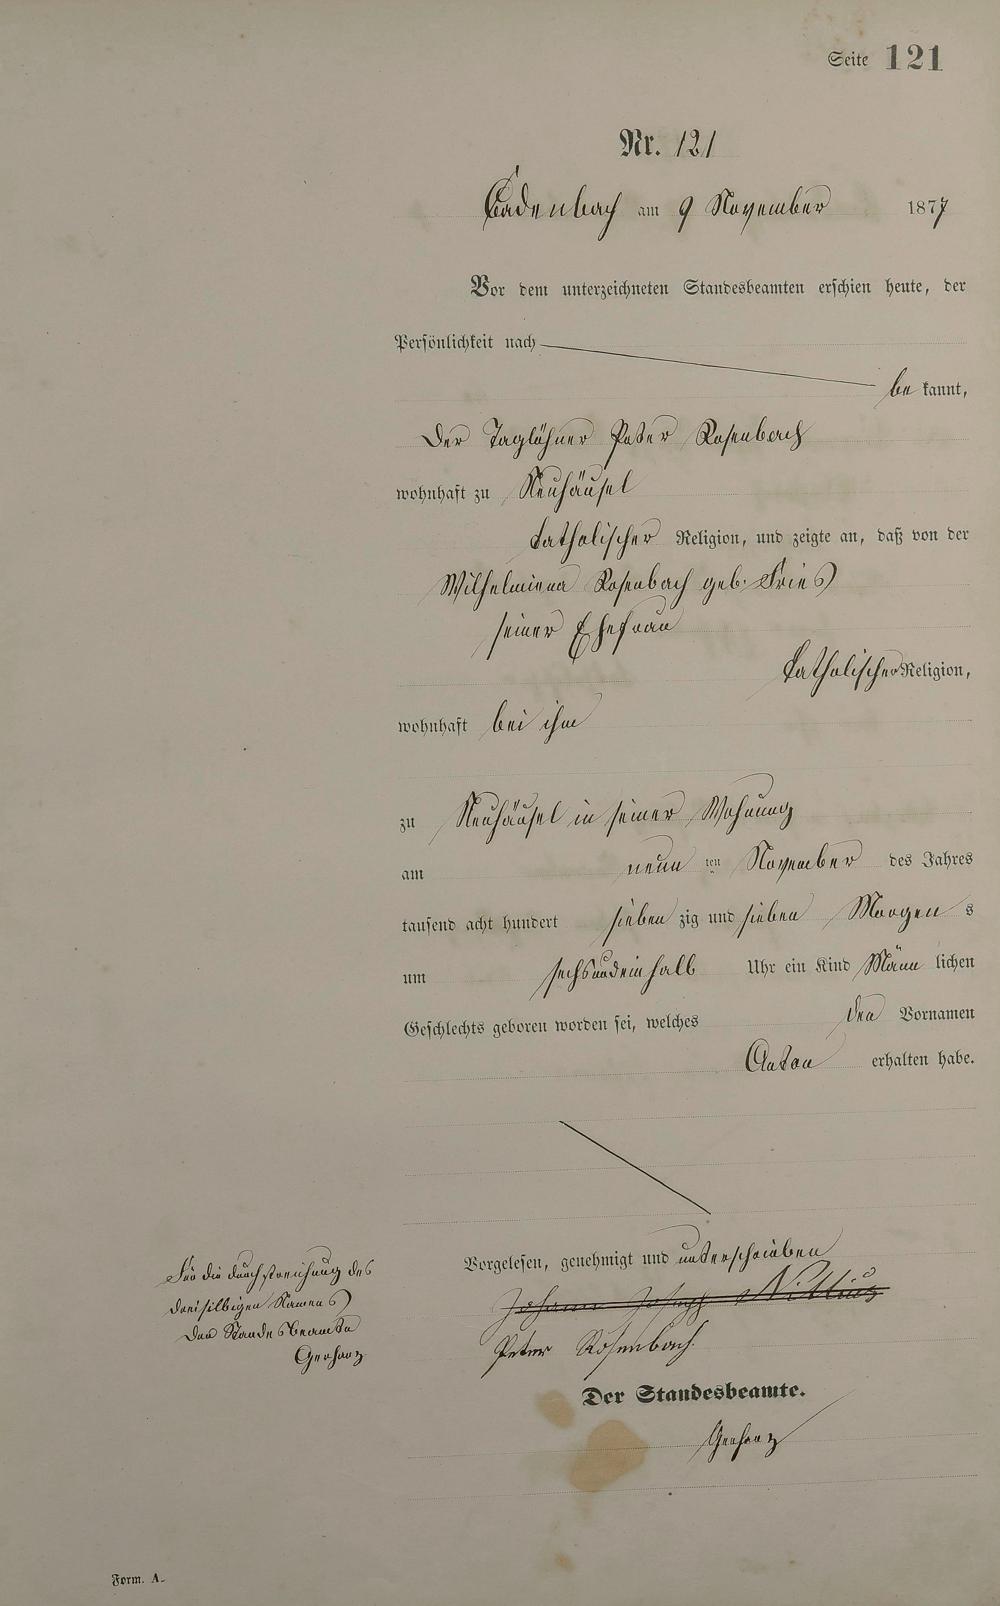 Seite 121
Nr. 121
Cadenbach am 9 November 1877
Vor dem unterzeichneten Standesbeamten erschien heute, der
Persönlichkeit nach
be kannt,
Der Taglöhner Peter Rosenbach
wohnhaft zu Neuhäusel
katholischer Religion, und zeigte an, daß von der
Wilhelmiena Rosenbach geb. Fries
seiner Ehefrau
katholischer Religion,
wohnhaft bei ihm
zu Neuhäusel in seiner Wohnung
am neun ten November des Jahres
tausend acht hundert sieben zig und sieben Morgen s
um sechsundeinhalb Uhr ein Kind Männ lichen
Geschlechts geboren worden sei, welches den Vornamen
Anton erhalten habe.
Vorgelesen, genehmigt und unterschrieben
Johann Joseph
Peter Rosenbach.
Der Standesbeamte.
Gerharz
Für die durchstreichung des
dreisilbigen Namens
Der Standesbeamte
Gerharz
Form. A.